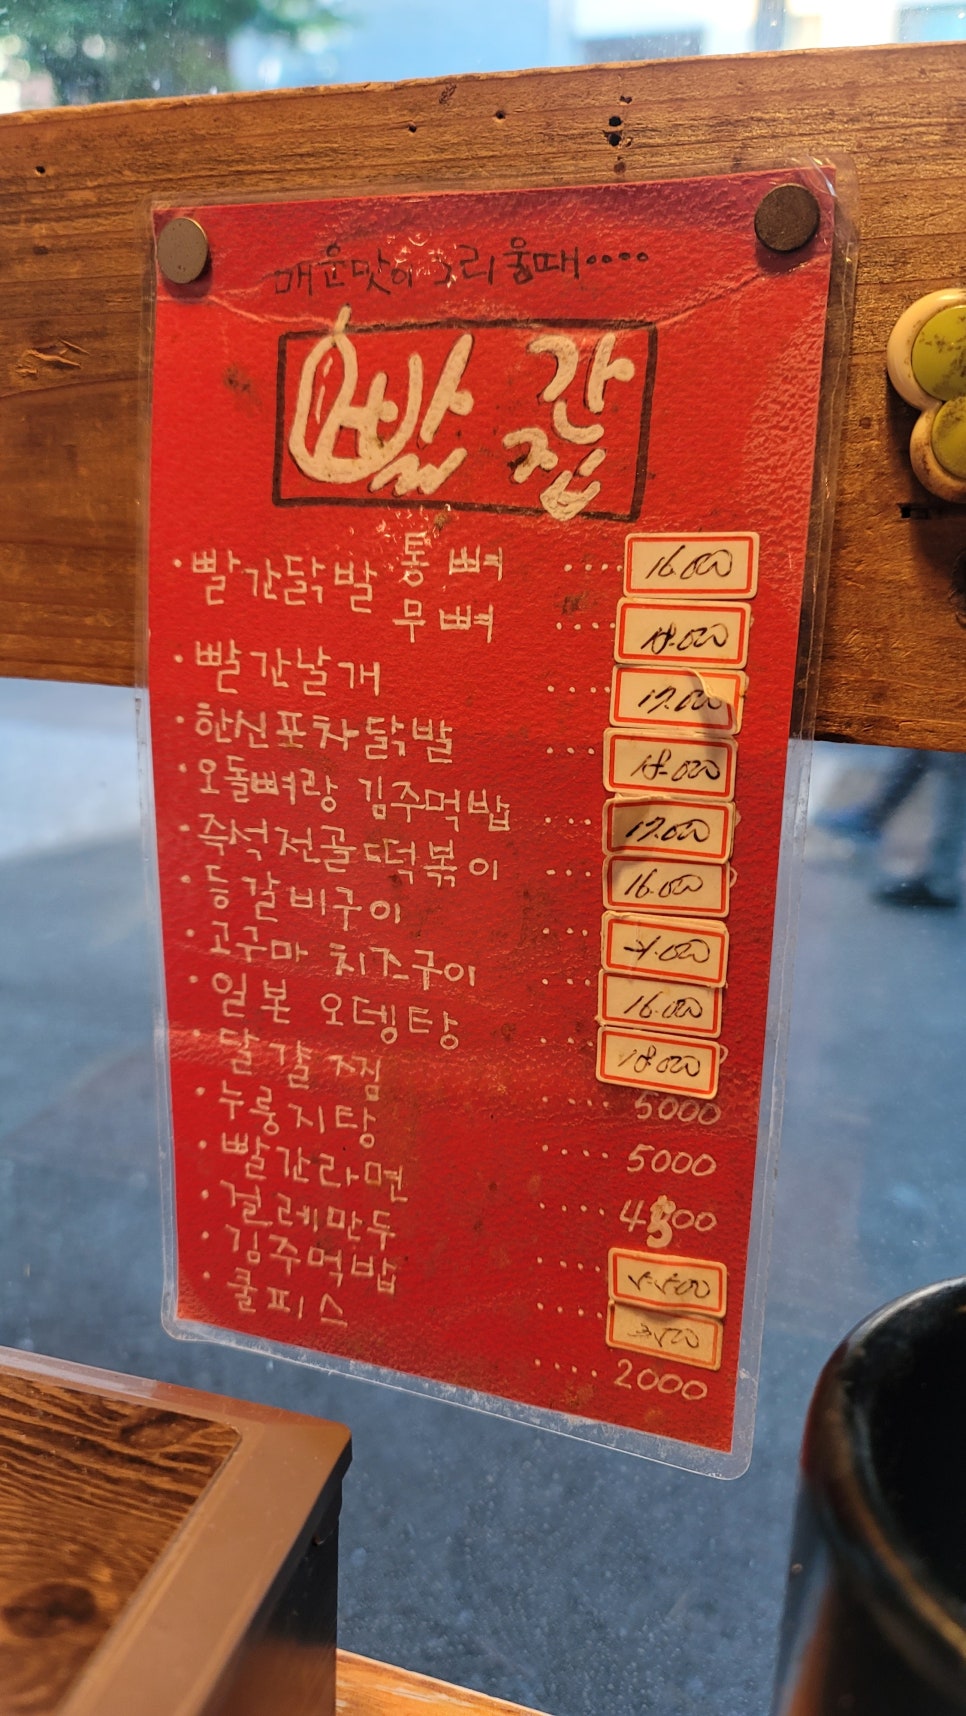 매운맛이 그리울때····
빨간집
·빨간닭발 통뼈 .... 16.000
무뼈 .... 18.000
·빨간날개 .... 17.000
·한신포차닭발 ... 18.000
·오돌뼈랑 김주먹밥 .... 17.000
·즉석전골떡볶이 .... 16.000
·등갈비구이 ....
·고구마 치즈구이 .... 16.000
·일본 오뎅탕 .... 18.000
·달걀찜 .... 5000
·누룽지탕 .... 5000
·빨간라면 .... 4500
·걸레만두 ....
·김주먹밥 .... 3500
·쿨피스 .... 2000